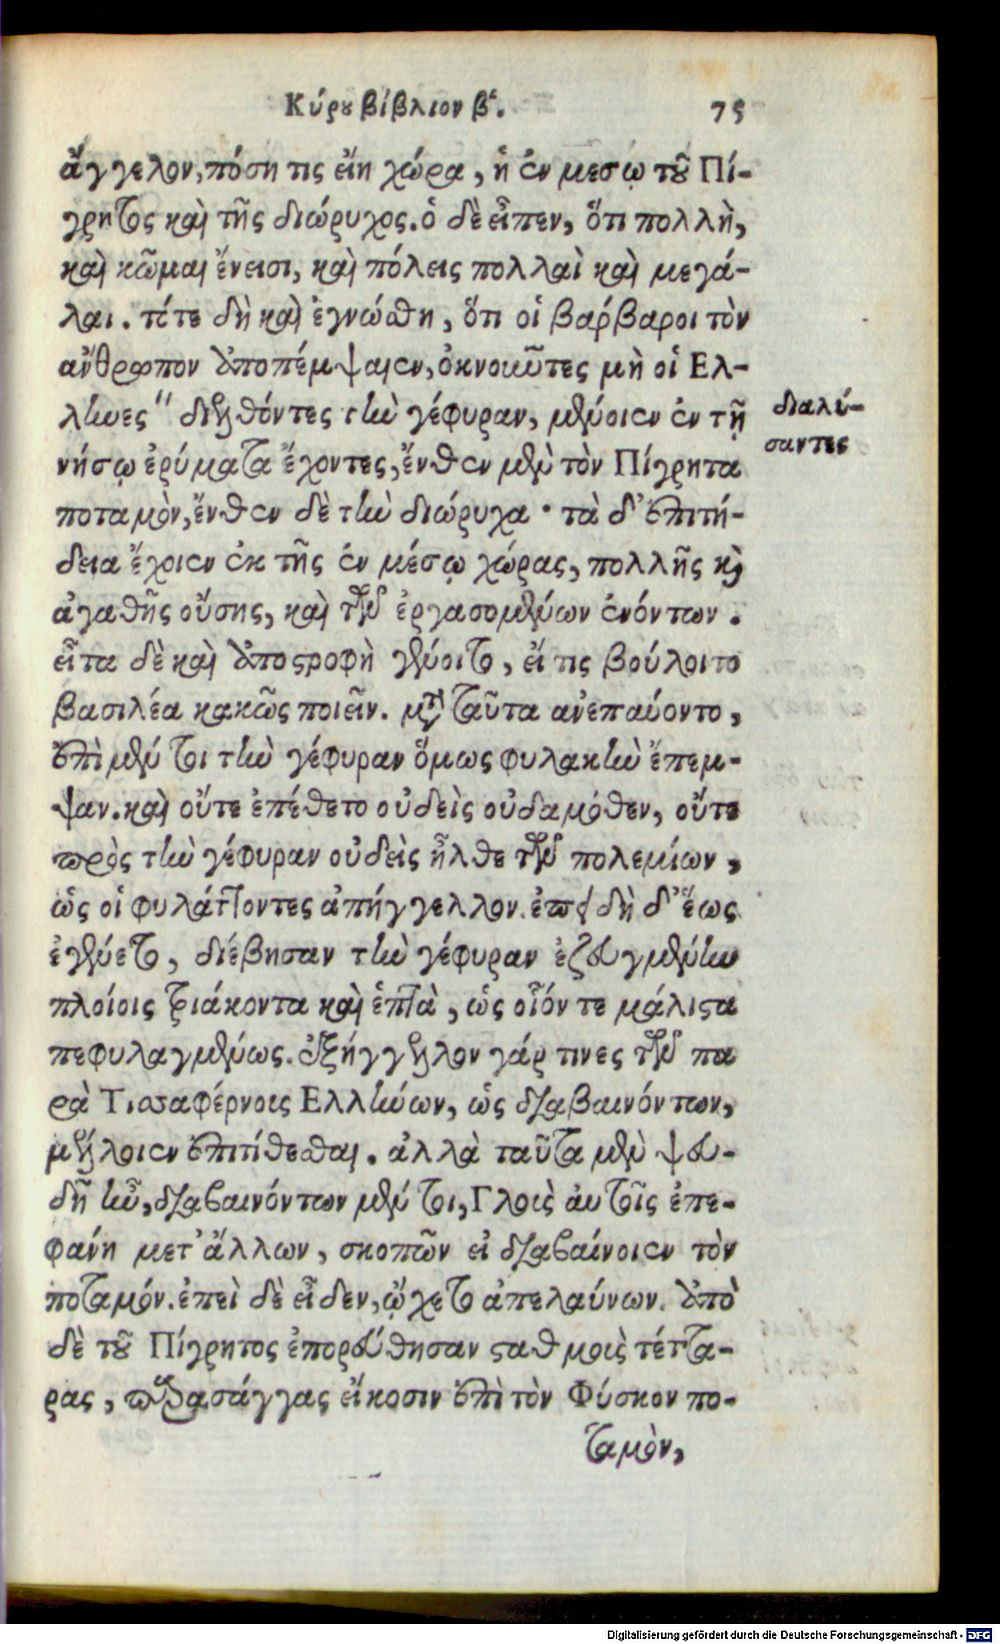 Κύρου βίβλιον β΄. 75
ἄγγελον, πόση τις εἴη χώρα, ἡ ἐν μεσῳ τοῦ Πί-
γρητος καὶ τῆς διώρυχος. ὁ δὲ εἶπεν, ὅτι πολλὴ,
καὶ κῶμαι ἔνεισι, καὶ πόλεις πολλαὶ καὶ μεγά-
λαι. τότε δὴ καὶ ἐγνώσθη, ὅτι οἱ βάρβαροι τὸν
ἄνθρωπον ὑποπέμψαιεν, ὀκνοῦντες μὴ οἱ Ελ-
ληνες " διελθόντες τὴν γέφυραν, μένοιεν ἐν τῇ
διαλύ-
σαντες
νήσῳ ἐρύματα ἔχοντες, ἔνθεν μὲν τὸν Πίγρητα
ποταμὸν, ἔνθεν δὲ τὴν διώρυχα · τὰ δ' ἐπιτή-
δεια ἔχοιεν ἐκ τῆς ἐν μέσῳ χώρας, πολλῆς καὶ
ἀγαθῆς οὔσης, καὶ τῶν ἐργασομένων ἐνόντων.
εἶτα δὲ καὶ ὑποστροφὴ γένοιτο, εἴ τις βούλοιτο
βασιλέα κακῶς ποιεῖν. μετὰ ταῦτα ἀνεπαύοντο,
ἐπὶ μέν τοι τὴν γέφυραν ὅμως φυλακὴν ἔπεμ-
ψαν. καὶ οὔτε ἐπέθετο οὐδεὶς οὐδαμόθεν, οὔτε
πρὸς τὴν γέφυραν οὐδεὶς ἦλθε τῶν πολεμίων,
ὡς οἱ φυλάττοντες ἀπήγγελλον. ἐπεὶ δὴ δ' ἕως
ἐγένετο, διέβησαν τὴν γέφυραν ἐζευγμένην
πλοίοις τριάκοντα καὶ ἑπτὰ, ὡς οἷόν τε μάλιστα
πεφυλαγμένως. ἐξήγγελλον γάρ τινες τῶν πα
ρὰ Τισσαφέρνοις Ελλήνων, ὡς διαβαινόντων,
μέλλοιεν ἐπιτίθεσθαι. ἀλλὰ ταῦτα μὲν ψευ-
δῆ ἦν, διαβαινόντων μέν τοι, Γλοὶς ἀυτοῖς ἐπε-
φάνη μετ' ἄλλων, σκοπῶν εἰ διαβαίνοιεν τὸν
ποταμόν. ἐπεὶ δὲ εἶδεν, ᾤχετο ἀπελαύνων. ὑπὸ
δὲ τοῦ Πίγρητος ἐπορεύθησαν σταθμοὺς τέττα-
ρας, παρασάγγας εἴκοσιν ἐπὶ τὸν Φύσκον πο-
ταμὸν,
Digitalisierung gefördert durch die Deutsche Forschungsgemeinschaft - DFG